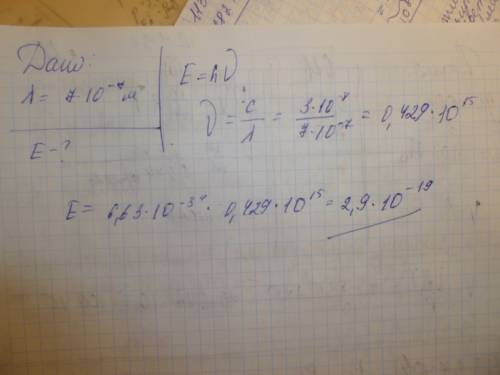 Дано:
λ = 7·10⁻⁷м
E-?
E=hν
ν = c/λ = 3·10⁸/7·10⁻⁷ = 0,429·10¹⁵
E= 6,63·10⁻³⁴· 0,429·10¹⁵= 2,9·10⁻¹⁹